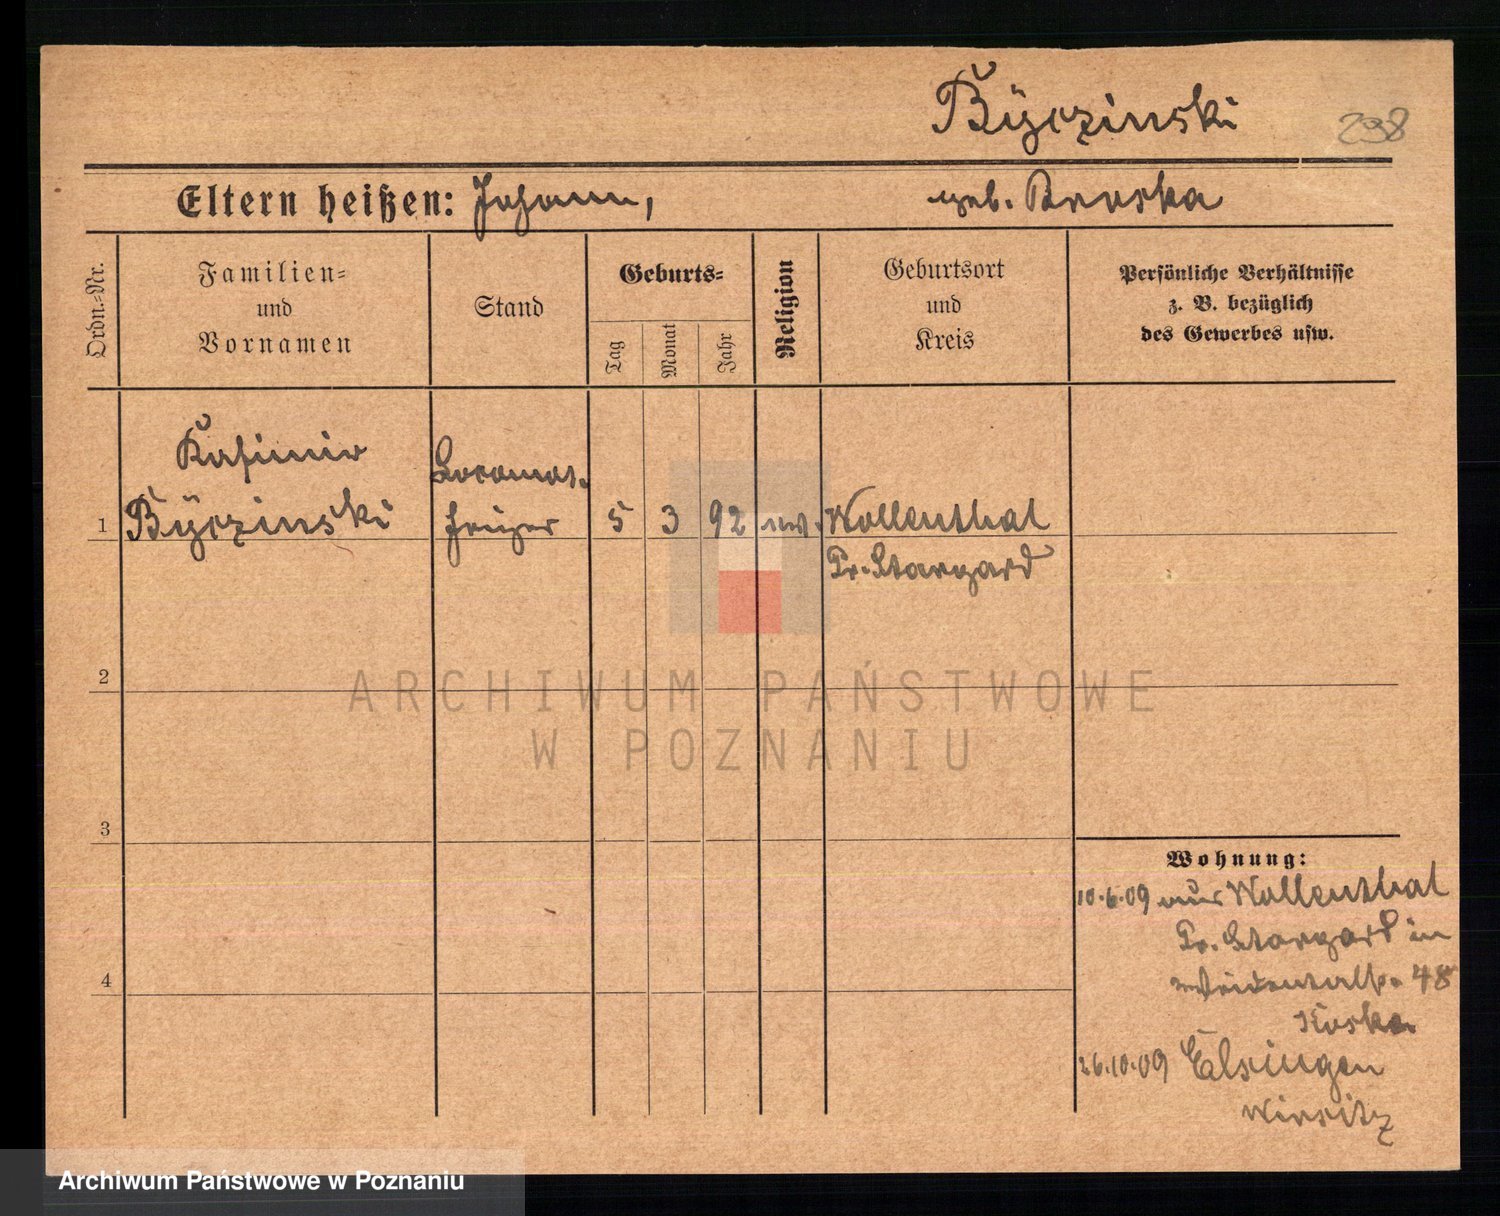 Byczinski 238
Eltern heißen: Johann, geb. Brorska
Ordn.-Nr.
Familien-
und
Vornamen
Stand
Geburts-
Tag
Monat
Jahr
Religion
Geburtsort
und
Kreis
Persönliche Verhältnisse
z. B. bezüglich
des Gewerbes usw.
Kasimir
Byczinski
Locomot.
heizer
1
5
3
92
Wollenthal
Pr. Stargard
2
ARCHIWUM PAŃSTWOWE
W POZNANIU
3
4
Wohnung:
10.6.09 aus Wollenthal
Pr. Stargard in
48
26.10.09 Elsingen
Wirsitz
Archiwum Państwowe w Poznaniu